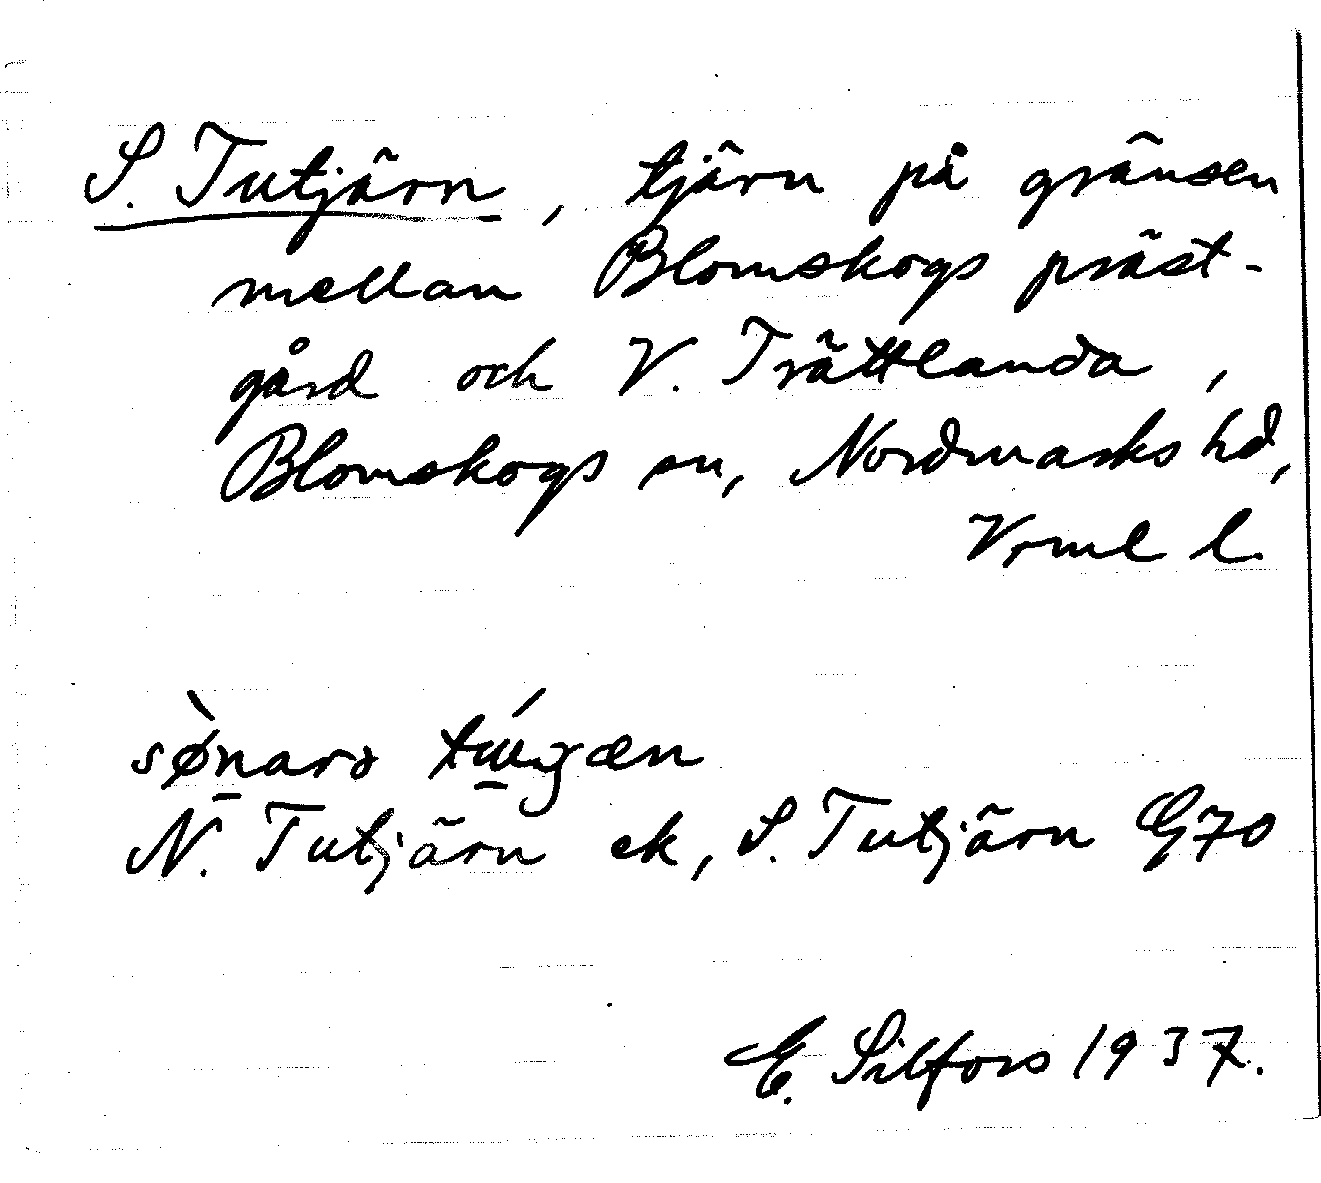 S. Tutjärn, tjärn på gränsen
mellan Blomskogs präst-
gård och V. Trättlanda,
Blomskogs sn, Nordmarks hd,
Vrml l.
sø̀narə
N. Tutjärn ek, S. Tutjärn G70
E. Silfors 1937.